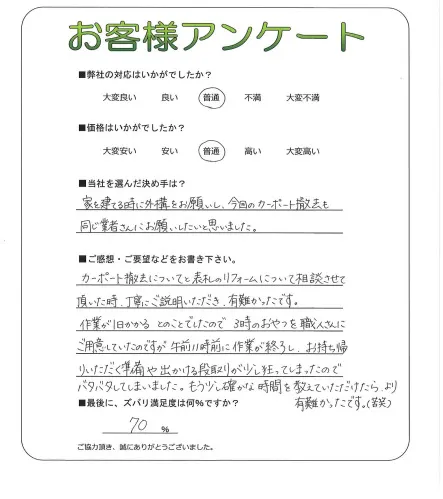 お客様アンケート
■弊社の対応はいかがでしたか？
大変良い 良い 普通 不満 大変不満
■価格はいかがでしたか？
大変安い 安い 普通 高い 大変高い
■当社を選んだ決め手は？
家を建てる時に外構をお願いし、今回のカーポート撤去も
同じ業者さんにお願いしたいと思いました。
■ご感想・ご要望などをお書き下さい。
カーポート撤去についてと表札のリフォームについて相談させて
頂いた時、丁寧にご説明いただき、有難かったです。
作業が1日かかるとのことでしたので3時のおやつを職人さんに
ご用意していたのですが午前11時前に作業が終了し、お持ち帰
りいただく準備や出かける段取りが少し狂ってしまったので
バタバタしてしまいました。もう少し確かな時間を教えていただけたら、より
有難かったです。(苦笑)
■最後に、ズバリ満足度は何％ですか？
70 %
ご協力頂き、誠にありがとうございました。